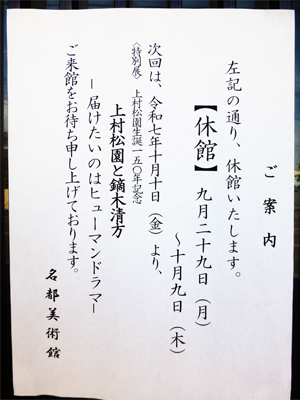 ご案内
左記の通り、休館いたします。
【休館】 九月二十九日(月)
～十月九日(木)
次回は、令和七年十月十日(金)より、
〈特別展〉上村松園生誕一五〇年記念
上村松園と鏑木清方
－届けたいのはヒューマンドラマ－
ご来館をお待ち申し上げております。
名都美術館